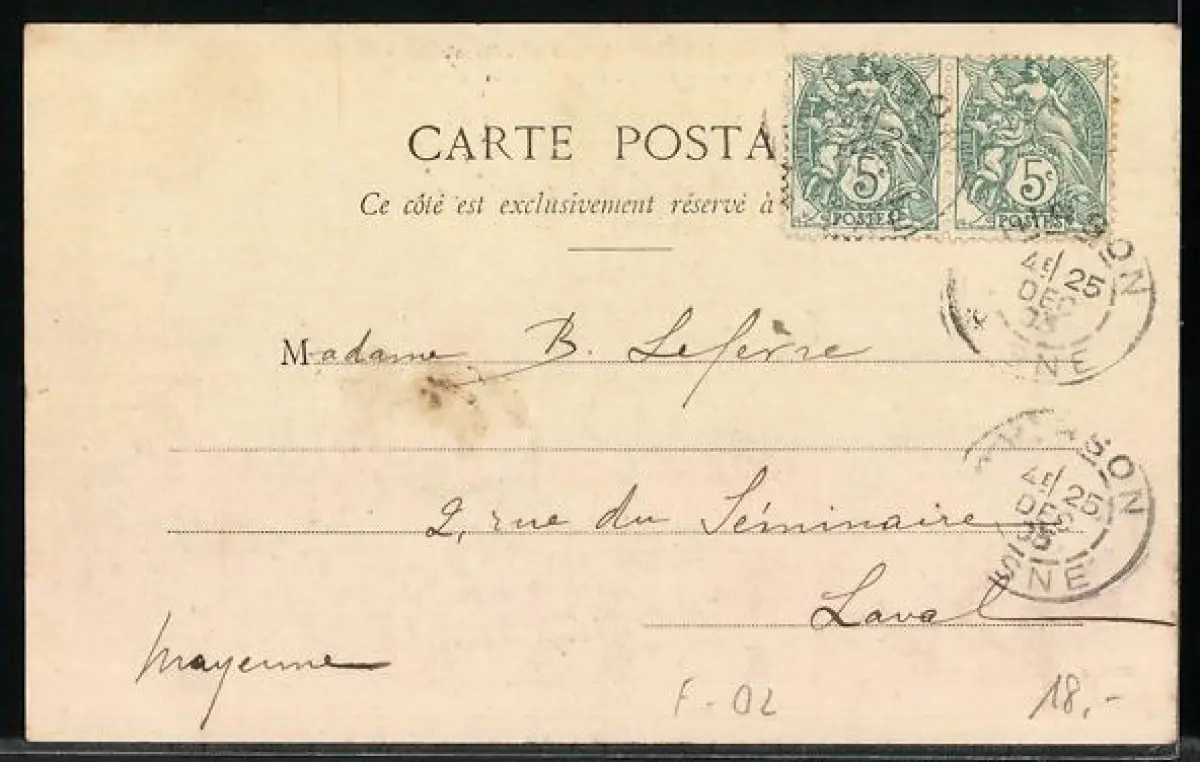 CARTE POSTA
Ce côté est exclusivement réservé à
5c
POSTES
5c
POSTES
4E/25
DEC
Madame B. Lefèvre
SON
4E/25
DEC
SNE
2, rue du Séminaire
Laval
Mayenne
F-02
18,-